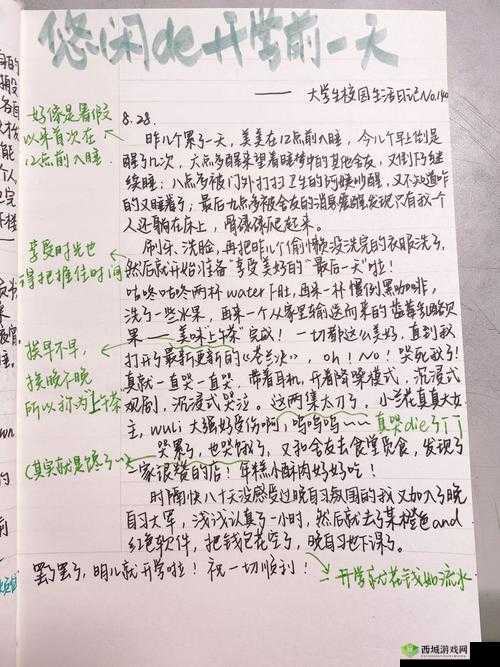 悠闲de开学前一天
——大学生校园生活日记No.140
8.28.
好像是暑假
以来首次在
12点前入睡
昨儿个累了一天，美美在12点前入睡，今儿个早倒是
醒了几次，六点多醒来望着睡梦中的其他舍友，又倒乃继
续睡；八点多被门外打扫卫生的阿姨吵醒，又不知道咋
的又睡着了；最后九点多被舍友的消息震醒，发现只有我一个
人还躺在床上，骨碌碌爬起来。
享受时光也
得把握住时间
刷牙、洗脸，再把昨儿个偷懒没洗完的衣服洗了，
然后就开始准备“享受美好的“最后一天”啦！
咕咚咕咚两杯water下肚，再来一杯惯例黑咖啡，
洗了一些水果，再来一个从家里输送而来的蓝莓乳酪欧
挨早不早，
挨晚不晚
所以称为“上午茶”
果——美味上午茶“完成！一切都这么美好，直到我
打开了最新更新的《苍兰诀》，oh！No！哭死我了！
真就一直哭一直哭，带着耳机，开着降噪模式，沉浸式
观剧，沉浸式哭泣。这两集太刀了，小兰花真真大女
主，wuli大强好受伤啊，呜呜呜~~~真哭die了TT
(其实就是馋了…)
哭累了，也哭饿了，又和舍友去食堂觅食，发现了
一家很赞的店！年糕小酥肉好好吃！
时隔快八十天没感受过晚自习氛围的我又加入了晚
自习大军，浅浅认真了一小时，然后就去了某橙色and
红色软件，把钱包花空了，晚自习也下课了。
罢了罢了，明儿就开学啦！祝一切顺利！
开学就花钱如流水
西城游戏网